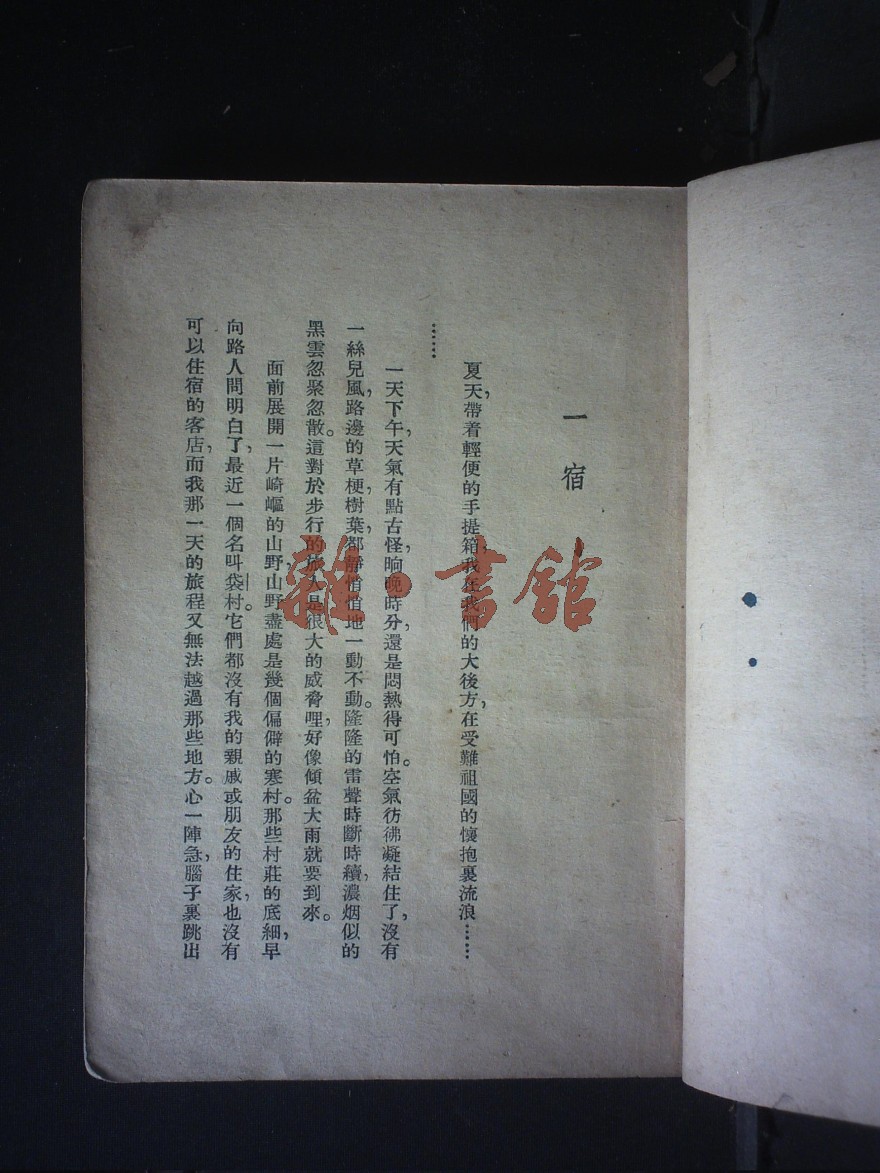 一宿
夏天，帶着輕便的手提箱，我在我們的大後方，在受難祖國的懷抱裏流浪……
……
一天下午，天氣有點古怪，晌晚時分，還是悶熱得可怕。空氣彷彿凝結住了，沒有
一絲兒風，路邊的草梗，樹葉，都靜悄悄地一動不動。隆隆的雷聲時斷時續，濃烟似的
黑雲忽聚忽散。這對於步行的旅人是很大的威脅哩，好像傾盆大雨就要到來。
面前展開一片崎嶇的山野，山野盡處是幾個偏僻的寒村。那些村莊的底細，早
向路人問明白了，最近一個名叫袋村。它們都沒有我的親戚或朋友的住家，也沒有
可以住宿的客店，而我那一天的旅程又無法越過那些地方。心一陣急，腦子裏跳出
雜·書館